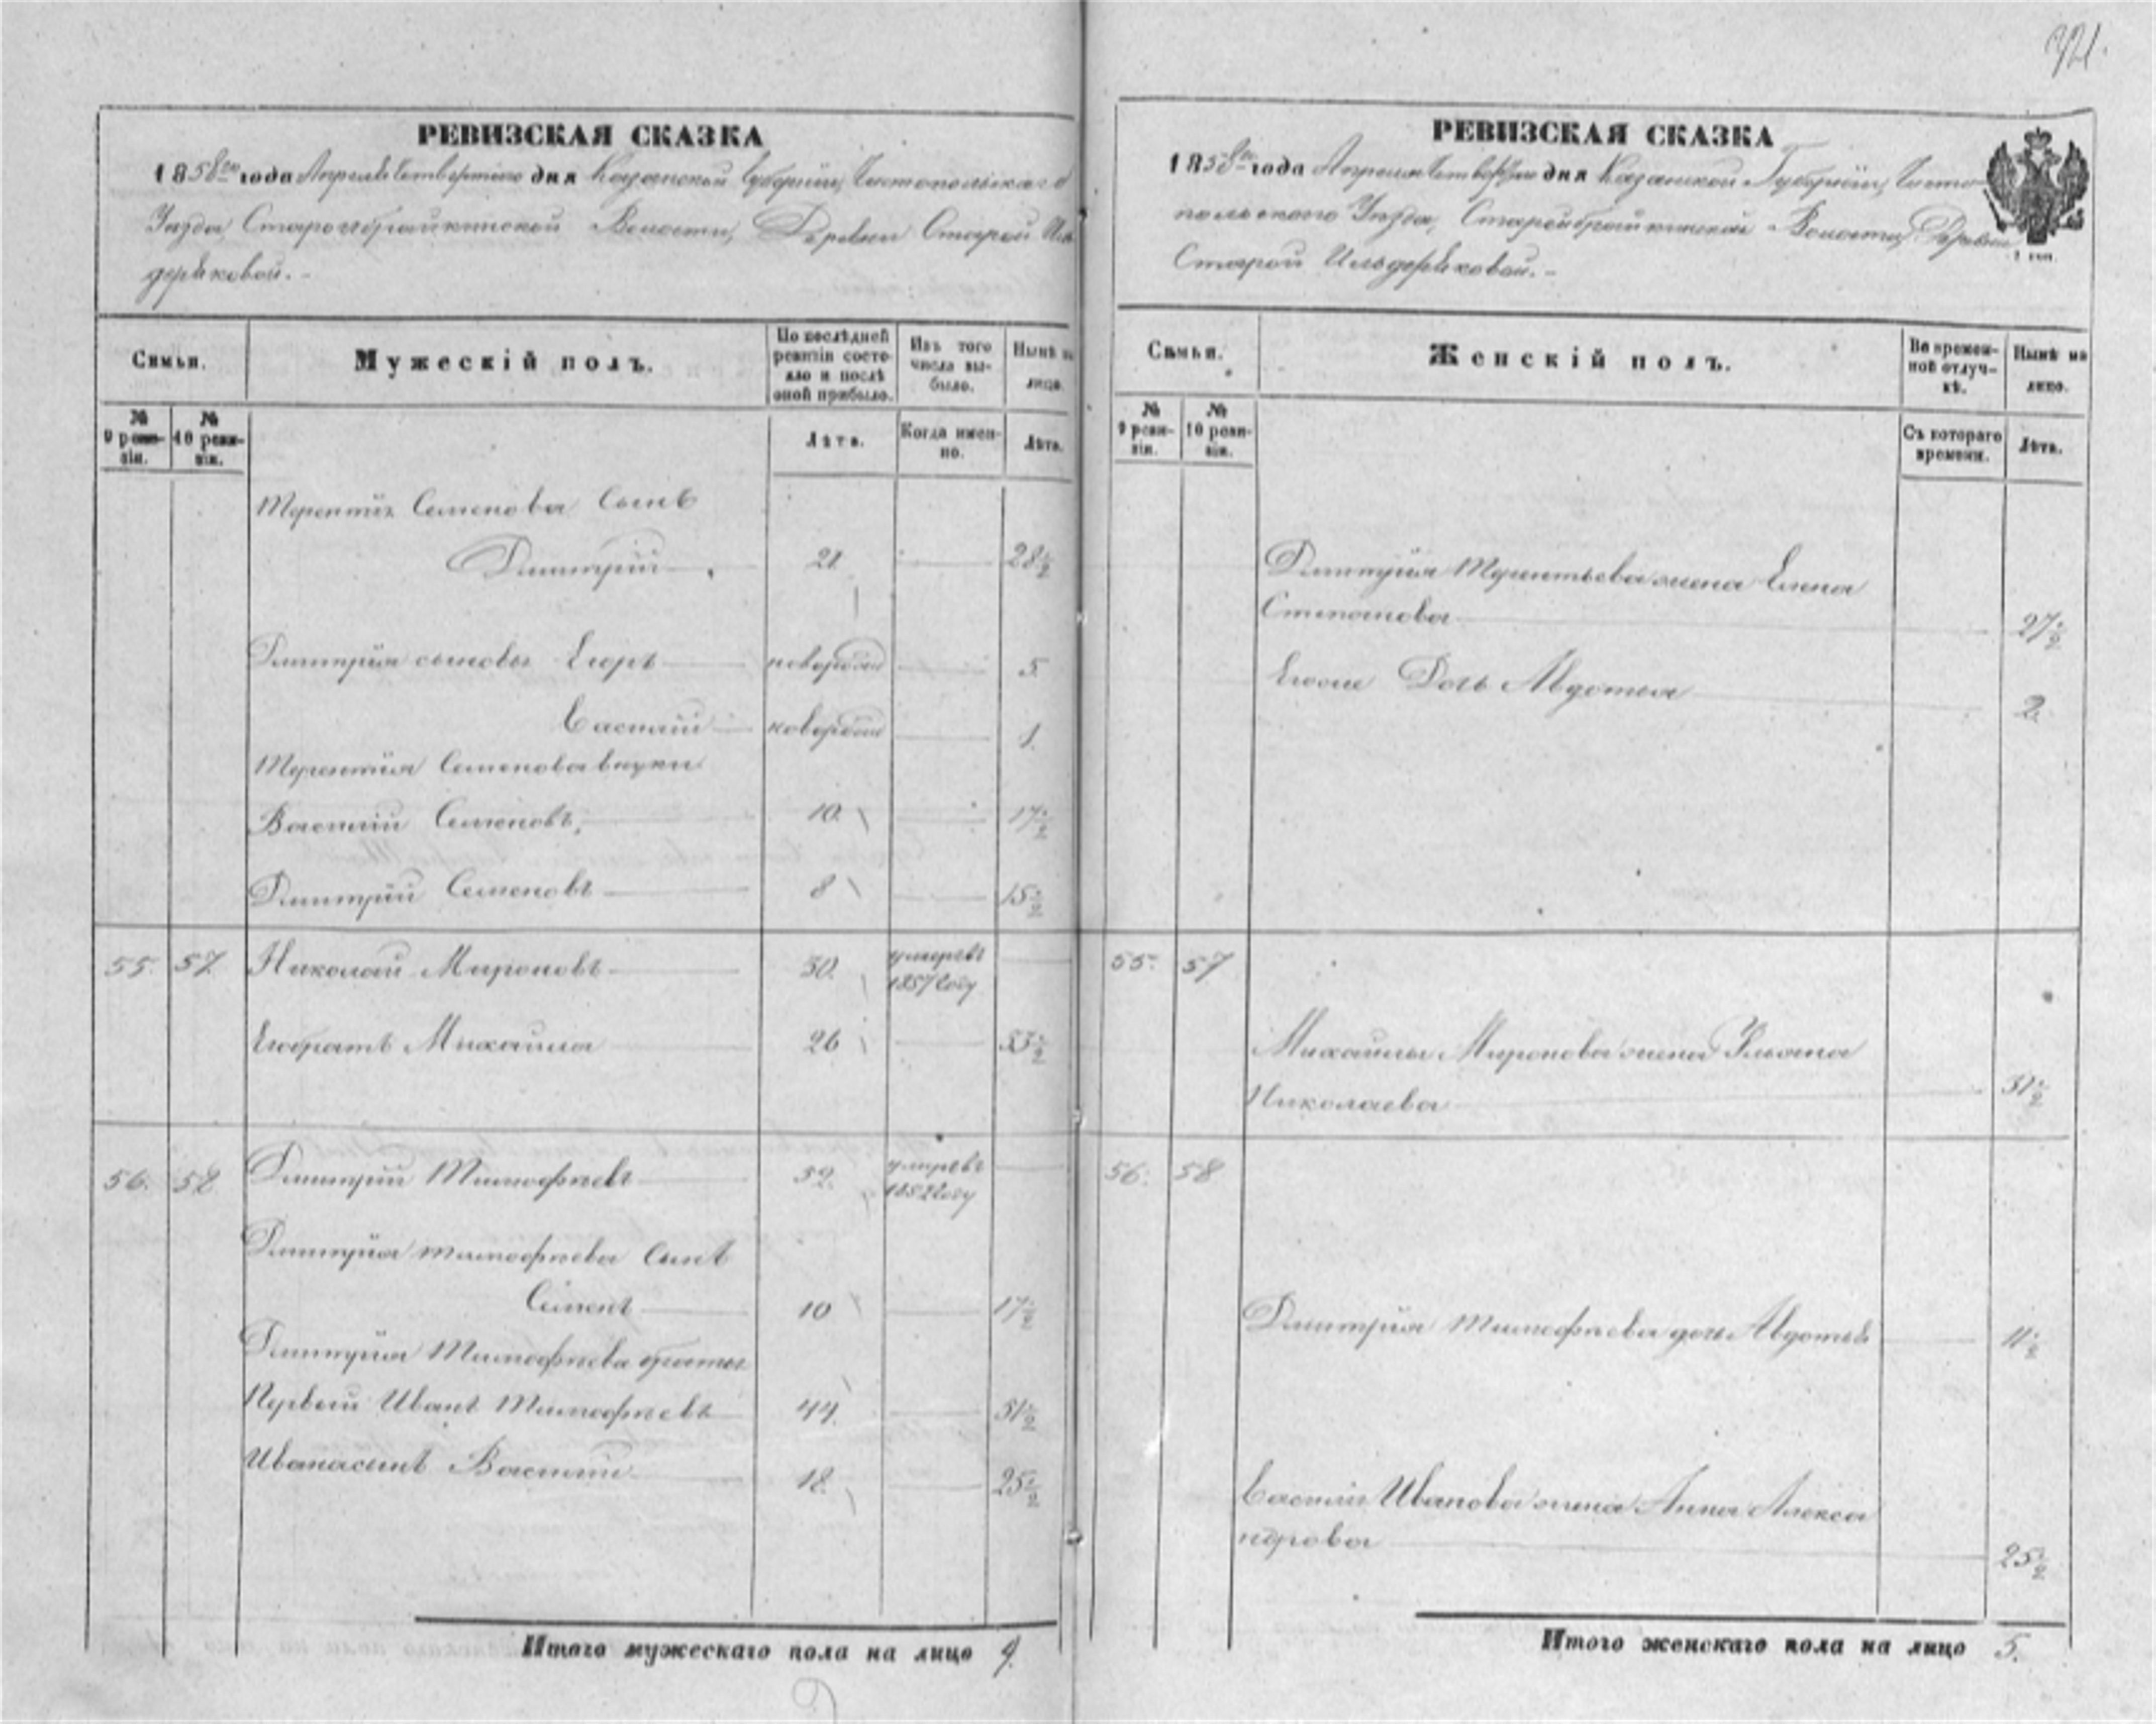 321.
РЕВИЗСКАЯ СКАЗКА
1858го года Апреля Четвертаго дня Казанской Губернiи, Чистопольскаго
Уѣзда, Староибрайкинской Волости, Деревни Старой Иль
деряковой.-
Семьи.
Мужескiй полъ.
По послѣдней ревизiи состояло и послѣ оной прибыло.
Изъ того числа выбыло.
Нынѣ на лицо.
№ 9 ревизiи.
№ 10 ревизiи.
Лѣта.
Когда именно.
Лѣта.
Терентiя Семенова Сынъ
Дмитрiй 21 28½
Дмитрiя сыновья Егоръ новорожд 5
Василiй новорожд 1.
Терентiя Семенова внуки
Василiй Семеновъ, 10. 17½
Дмитрiй Семеновъ 8 15½
55. 57 Николай Мироновъ 30. умеръ въ 1857 году
Его братъ Михайла 26 33½
56. 58 Дмитрiй Тимофѣевъ 52. умеръ въ 1852 году
Дмитрiя Тимофѣева Сынъ
Семенъ 10 17½
Дмитрiя Тимофѣева братья
Первый Иванъ Тимофѣевъ 44. 51½
Ивана сынъ Василiй 18. 25½
Итого мужескаго пола на лицо 9.
РЕВИЗСКАЯ СКАЗКА
1858го года Апреля Четвертаго дня Казанской Губернiи, Чисто
польского Уѣзда, Староибрайкинской Волости, Деревни
Старой Ильдеряковой.-
Семьи.
Женскiй полъ.
Во временной отлучкѣ.
Нынѣ на лицо.
№ 9 ревизiи.
№ 10 ревизiи.
Съ котораго времени.
Лѣта.
Дмитрiя Терентьева жена Елена
Степанова 27½
Егоже Дочь Авдотья 2.
55. 57
Михайлы Миронова жена Ульяна
Николаева 31½
56. 58
Дмитрiя Тимофѣева дочь Авдотья 11½
Василiя Иванова жена Анна Алекса
ндрова 25½
Итого женскаго пола на лицо 5.